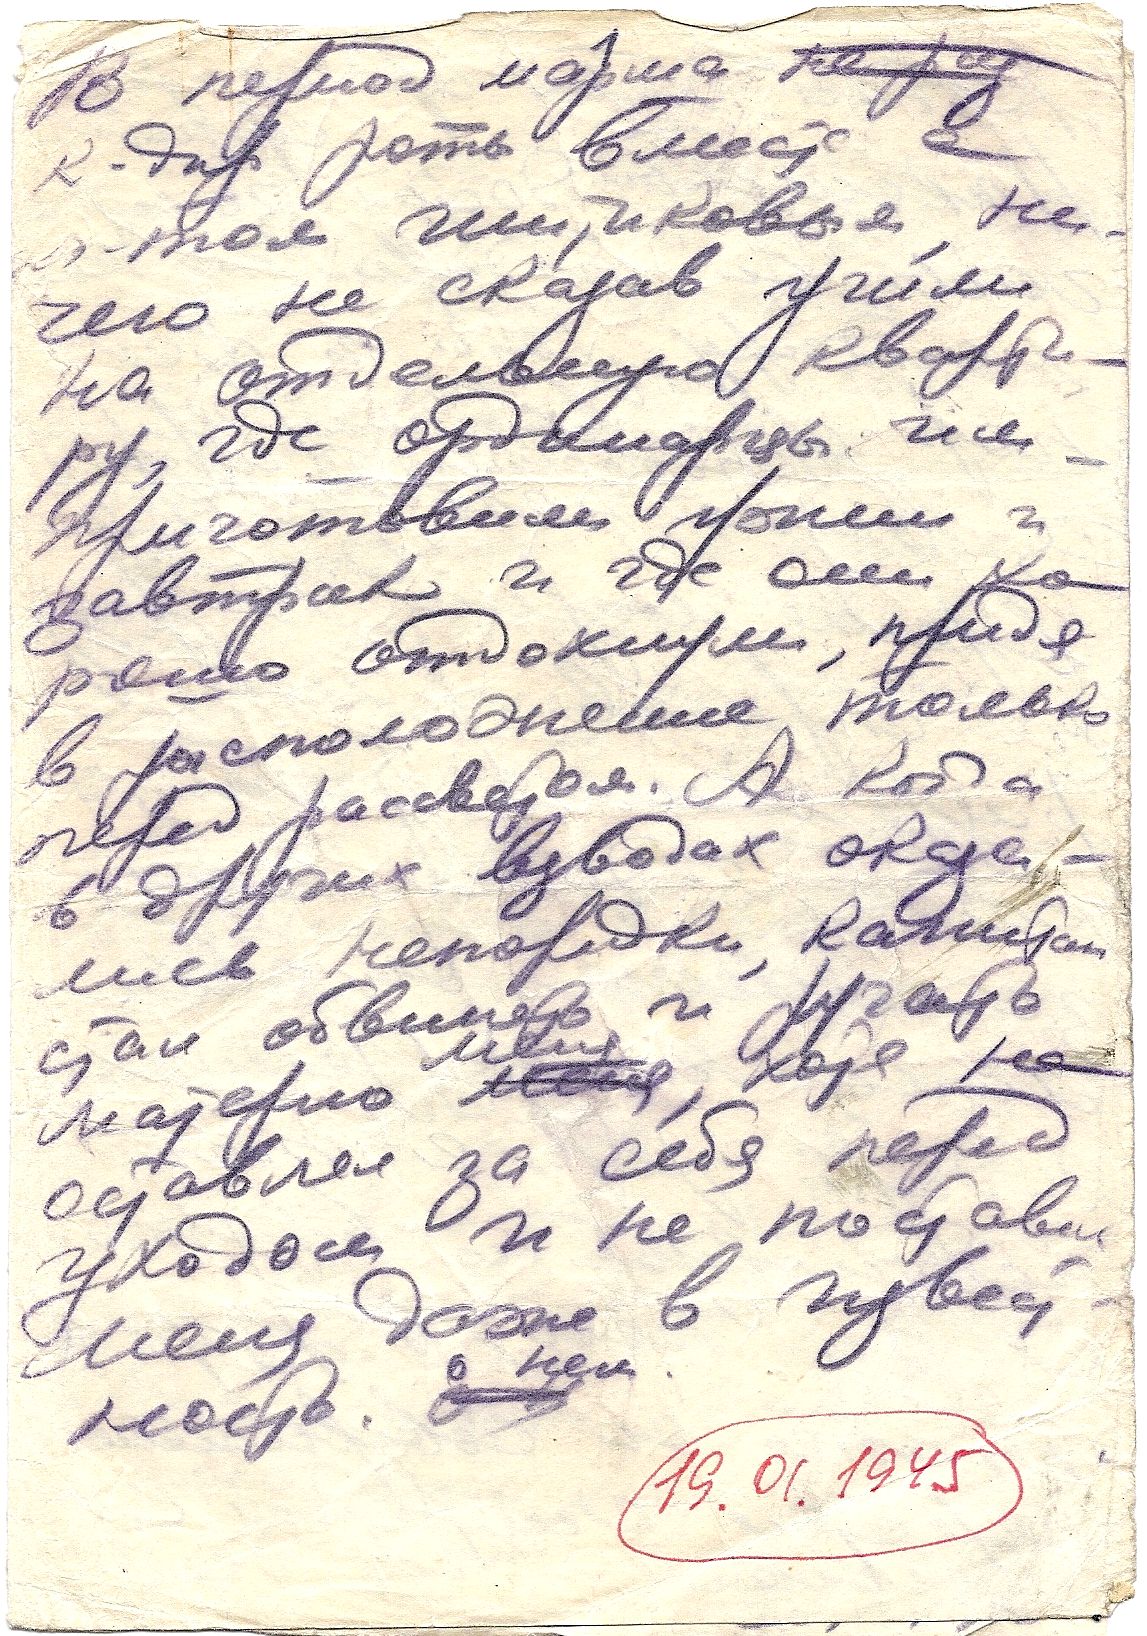 В период марша не раз
к-дир роты вместе с
л-том Чижиковым, ни-
чего не сказав, уходили
на отдельную кварти-
ру, где ординарцы им
приготовили ужин и
завтрак и где они хо
рошо отдохнули, придя
в расположение только
перед рассветом. А когда
в других взводах оказа-
лись непорядки, капитан
стал обвинять и ругать
матерно меня, хотя не
оставлял за себя перед
уходом и не поставил
меня даже в извест-
ность. о нем.
19.01.1945